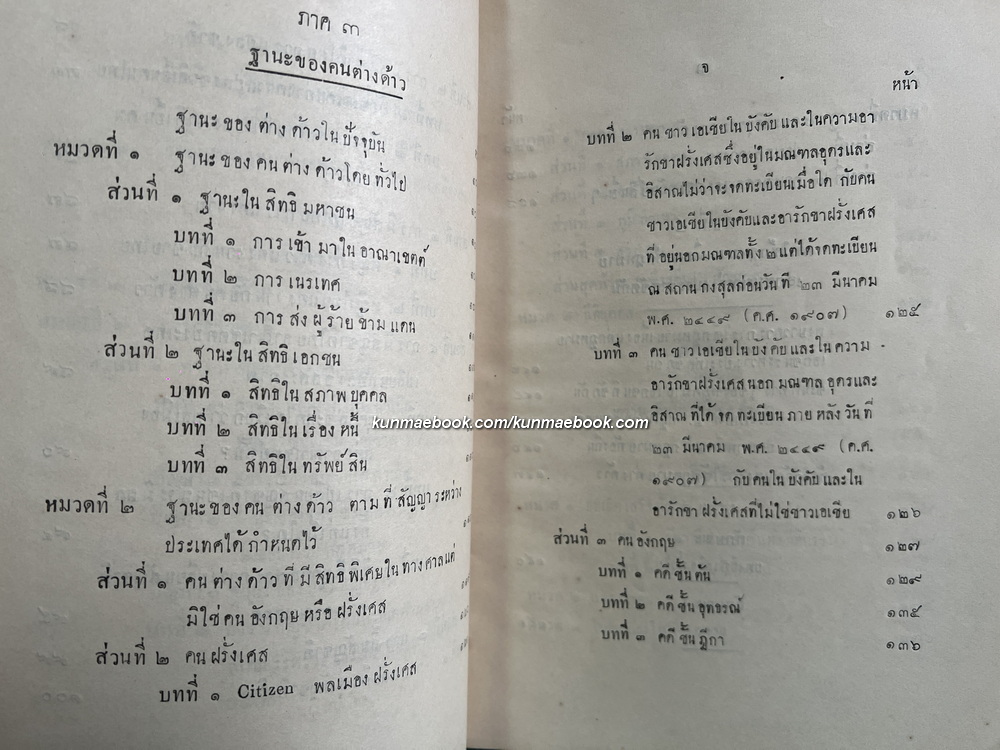 ภาค ๓
ฐานะของคนต่างด้าว
ฐานะของต่างด้าวในปัจจุบัน
หมวดที่ ๑ ฐานะของคนต่างด้าวโดยทั่วไป
ส่วนที่ ๑ ฐานะในสิทธิมหาชน
บทที่ ๑ การเข้ามาในอาณาเขตต์
บทที่ ๒ การเนรเทศ
บทที่ ๓ การส่งผู้ร้ายข้ามแดน
ส่วนที่ ๒ ฐานะในสิทธิเอกชน
บทที่ ๑ สิทธิในสภาพบุคคล
บทที่ ๒ สิทธิในเรื่องหนี้
บทที่ ๓ สิทธิในทรัพย์สิน
หมวดที่ ๒ ฐานะของคนต่างด้าว ตามที่สัญญาระหว่าง
ประเทศได้กำหนดไว้
ส่วนที่ ๑ คนต่างด้าวที่มีสิทธิพิเศษในทางศาลแต่
มิใช่คนอังกฤษหรือฝรั่งเศส
ส่วนที่ ๒ คนฝรั่งเศส
บทที่ ๑ Citizen พลเมืองฝรั่งเศส
จ
หน้า
บทที่ ๒ คนชาวเอเซียในบังคับและในความอา
รักขาฝรั่งเศสซึ่งอยู่ในมณฑลอุดรและ
อิสาณไม่ว่าจะจดทะเบียนเมื่อใด กับคน
ชาวเอเซียในบังคับและอารักขาฝรั่งเศส
ที่อยู่นอกมณฑลทั้ง ๒ แต่ได้จดทะเบียน
ณ สถานกงสุลก่อนวันที่ ๒๓ มีนาคม
พ.ศ. ๒๔๔๙ (ค.ศ. ๑๙๐๗) ๑๒๕
บทที่ ๓ คนชาวเอเซียในบังคับและในความ
อารักขาฝรั่งเศสนอกมณฑลอุดรและ
อิสาณที่ได้จดทะเบียนภายหลังวันที่
๒๓ มีนาคม พ.ศ. ๒๔๔๙ (ค.ศ.
๑๙๐๗) กับคนในบังคับและใน
อารักขาฝรั่งเศสที่ไม่ใช่ชาวเอเซีย ๑๒๖
ส่วนที่ ๓ คนอังกฤษ ๑๒๗
บทที่ ๑ คดีชั้นต้น ๑๒๙
บทที่ ๒ คดีชั้นอุทธรณ์ ๑๓๕
บทที่ ๓ คดีชั้นฎีกา ๑๓๖
kunmaebook.com/kunmaebook.com